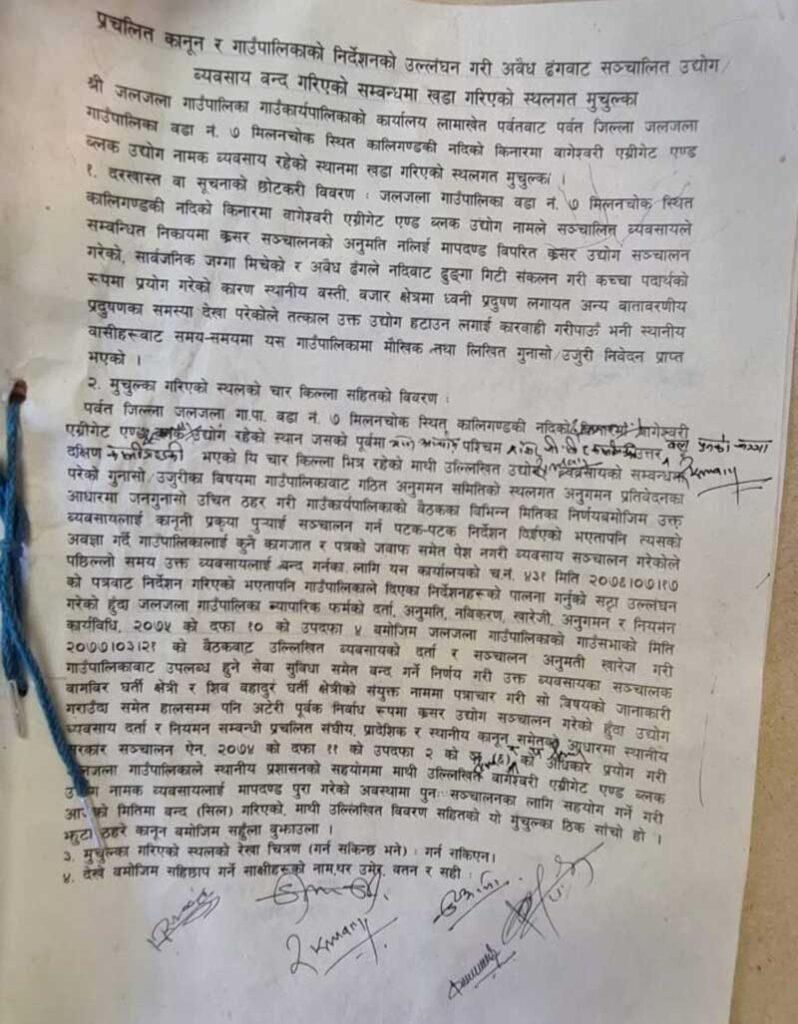 प्रचलित कानून र गाउँपालिकाको निर्देशनको उल्लंघन गरी अवैध ढंगवाट सञ्चालित उद्योग/
व्यवसाय बन्द गरिएको सम्बन्धमा खडा गरिएको स्थलगत मुचुल्का
श्री जलजला गाउँपालिका गाउँकार्यपालिकाको कार्यालय लामाखेत पर्वतबाट पर्वत जिल्ला जलजला
गाउँपालिका वडा नं. ७ मिलनचोक स्थित कालिगण्डकी नदिको किनारमा वागेश्वरी एग्रीगेट एण्ड
ब्लक उद्योग नामक व्यवसाय रहेको स्थानमा खडा गरिएको स्थलगत मुचुल्का ।
१. दरखास्त वा सूचनाको छोटकरी विवरण : जलजला गाउँपालिका वडा नं. ७ मिलनचोक स्थित
कालिगण्डकी नदिको किनारमा वागेश्वरी एग्रीगेट एण्ड ब्लक उद्योग नामले सञ्चालित व्यवसायले
सम्बन्धित निकायमा क्रसर सञ्चालनको अनुमति नलिई मापदण्ड विपरित क्रसर उद्योग सञ्चालन
गरेको, सार्वजनिक जग्गा मिचेको र अवैध ढंगले नदिवाट ढुङ्गा गिटी संकलन गरी कच्चा पदार्थको
रूपमा प्रयोग गरेको कारण स्थानीय वस्ती, बजार क्षेत्रमा ध्वनी प्रदुषण लगायत अन्य वातावरणीय
प्रदुषणका समस्या देखा परेकोले तत्काल उक्त उद्योग हटाउन लगाई कारवाही गरीपाऊँ भनी स्थानीय
वासीहरूबाट समय-समयमा यस गाउँपालिकामा मौखिक तथा लिखित गुनासो/उजुरी निवेदन प्राप्त
भएको ।
२. मुचुल्का गरिएको स्थलको चार किल्ला सहितको विवरण :
पर्वत जिल्ला जलजला गा.पा. वडा नं. ७ मिलनचोक स्थित कालिगण्डकी नदिको किनारमा वागेश्वरी
एग्रीगेट एण्ड उद्योग रहेको स्थान जसको पूर्वमा पश्चिम उत्तर
दक्षिण भएको यि चार किल्ला भित्र रहेको माथी उल्लिखित उद्योग/व्यवसायको सम्बन्धमा
परेको गुनासो/उजुरीका विषयमा गाउँपालिकाबाट गठित अनुगमन समितिको स्थलगत अनुगमन प्रतिवेदनका
आधारमा जनगुनासो उचित ठहर गरी गाउँकार्यपालिकाको बैठकका विभिन्न मितिका निर्णयबमोजिम उक्त
व्यवसायलाई कानूनी प्रकृया पुर्‍याई सञ्चालन गर्न पटक-पटक निर्देशन दिईएको भएतापनि त्यसको
अवज्ञा गर्दै गाउँपालिकालाई कुनै कागजात र पत्रको जवाफ समेत पेश नगरी व्यवसाय सञ्चालन गरेकोले
पछिल्लो समय उक्त व्यवसायलाई बन्द गर्नका लागि यस कार्यालयको च.नं. ४३१ मिति २०७६।०७।१७
को पत्रवाट निर्देशन गरिएको भएतापनि गाउँपालिकाले दिएका निर्देशनहरूको पालना गर्नुको सट्टा उल्लंघन
गरेको हुँदा जलजला गाउँपालिका व्यापारिक फर्मको दर्ता, अनुमति, नविकरण, खारेजी, अनुगमन र नियमन
कार्यविधि, २०७५ को दफा १० को उपदफा ४ बमोजिम जलजला गाउँपालिकाको गाउँसभाको मिति
२०७७।०३।२१ को बैठकवाट उल्लिखित व्यवसायको दर्ता र सञ्चालन अनुमती खारेज गरी
गाउँपालिकावाट उपलब्ध हुने सेवा सुविधा समेत बन्द गर्ने निर्णय गरी उक्त व्यवसायका सञ्चालक
वामविर घर्ती क्षेत्री र शिव बहादुर घर्ती क्षेत्रीको संयुक्त नाममा पत्राचार गरी सो विषयको जानाकारी
गराउँदा समेत हालसम्म पनि अटेरी पूर्वक निर्वाध रूपमा क्रसर उद्योग सञ्चालन गरेको हुँदा उद्योग
व्यवसाय दर्ता र नियमन सम्बन्धी प्रचलित संघीय, प्रादेशिक र स्थानीय कानून समेतको आधारमा स्थानीय
सरकार सञ्चालन ऐन, २०७४ को दफा ११ को उपदफा २ को को अधिकार प्रयोग गरी
जलजला गाउँपालिकाले स्थानीय प्रशासनको सहयोगमा माथी उल्लिखित वागेश्वरी एग्रीगेट एण्ड ब्लक
उद्योग नामक व्यवसायलाई मापदण्ड पुरा गरेको अवस्थामा पुनः सञ्चालनका लागि सहयोग गर्ने गरी
आजको मितिमा बन्द (सिल) गरिएको, माथी उल्लिखित विवरण सहितको यो मुचुल्का ठिक साँचो हो ।
झुटा ठहरे कानून बमोजिम सहुँला बुझाउला ।
३. मुचुल्का गरिएको स्थलको रेखा चित्रण (गर्न सकिन्छ भने) : गर्न सकिएन।
४. देखे बमोजिम सहिछाप गर्ने साक्षीहरूको नाम,थर उमेर, वतन र सही :